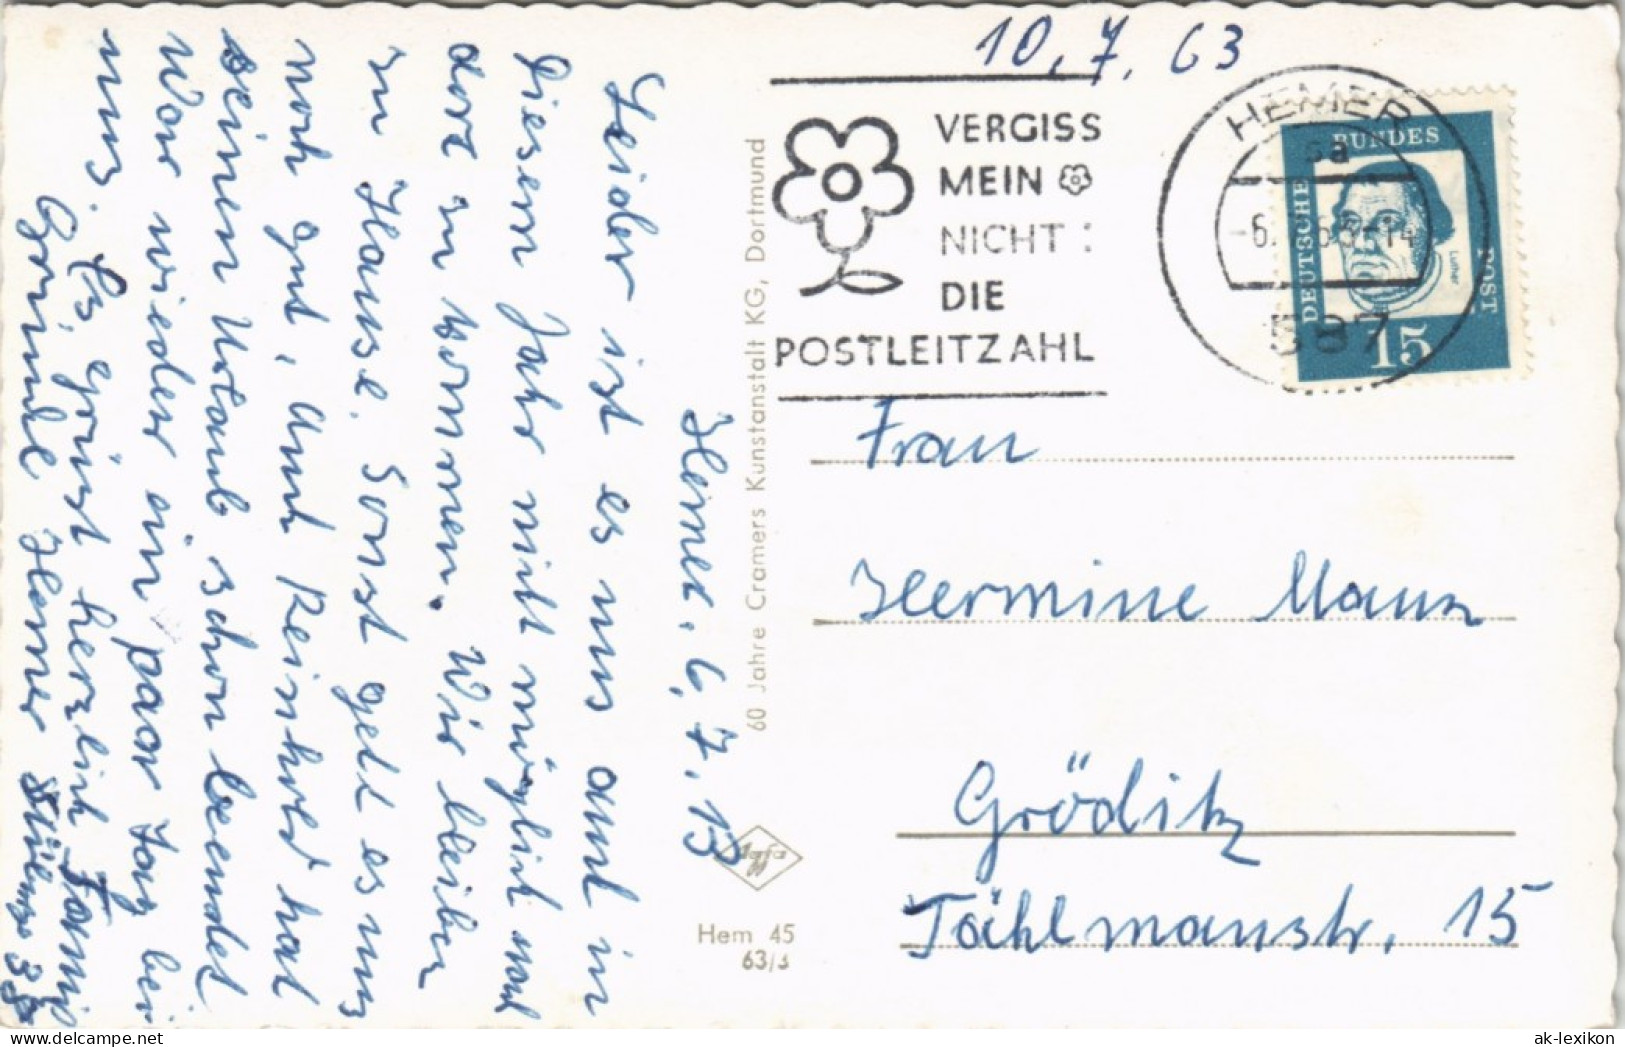 10.7.63
VERGISS
MEIN
NICHT:
DIE
POSTLEITZAHL
HEMER
sa
-6. 63-14
587
DEUTSCHE BUNDES POST
Luther
15
Frau
Hermine Maun
Gröditz
Tählmanstr. 15
60 Jahre Cramers Kunstanstalt KG, Dortmund
Agfa
Hem 45
63/3
Hemer. 6.7.13
Leider ist es uns auch in
diesem Jahr nicht möglich nach
dort zu kommen. Wir bleiben
zu Hause. Sonst geht es uns
noch gut, Auch Reinhard hat
seinen Urlaub schon beendet
War wieder ein paar Tag bei
uns. Es grüßt herzlich Familie
Hemer
ak-lexikon